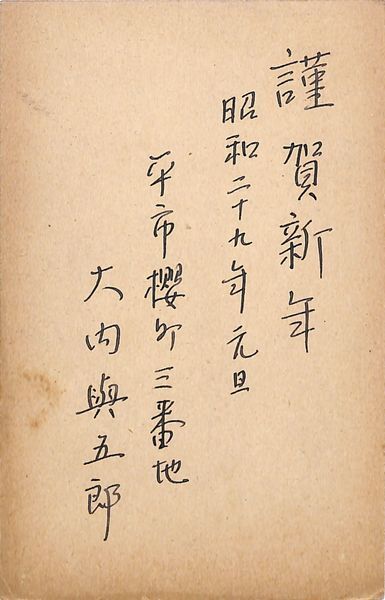 謹賀新年
昭和二十九年元旦
平市櫻町三番地
大内與五郎